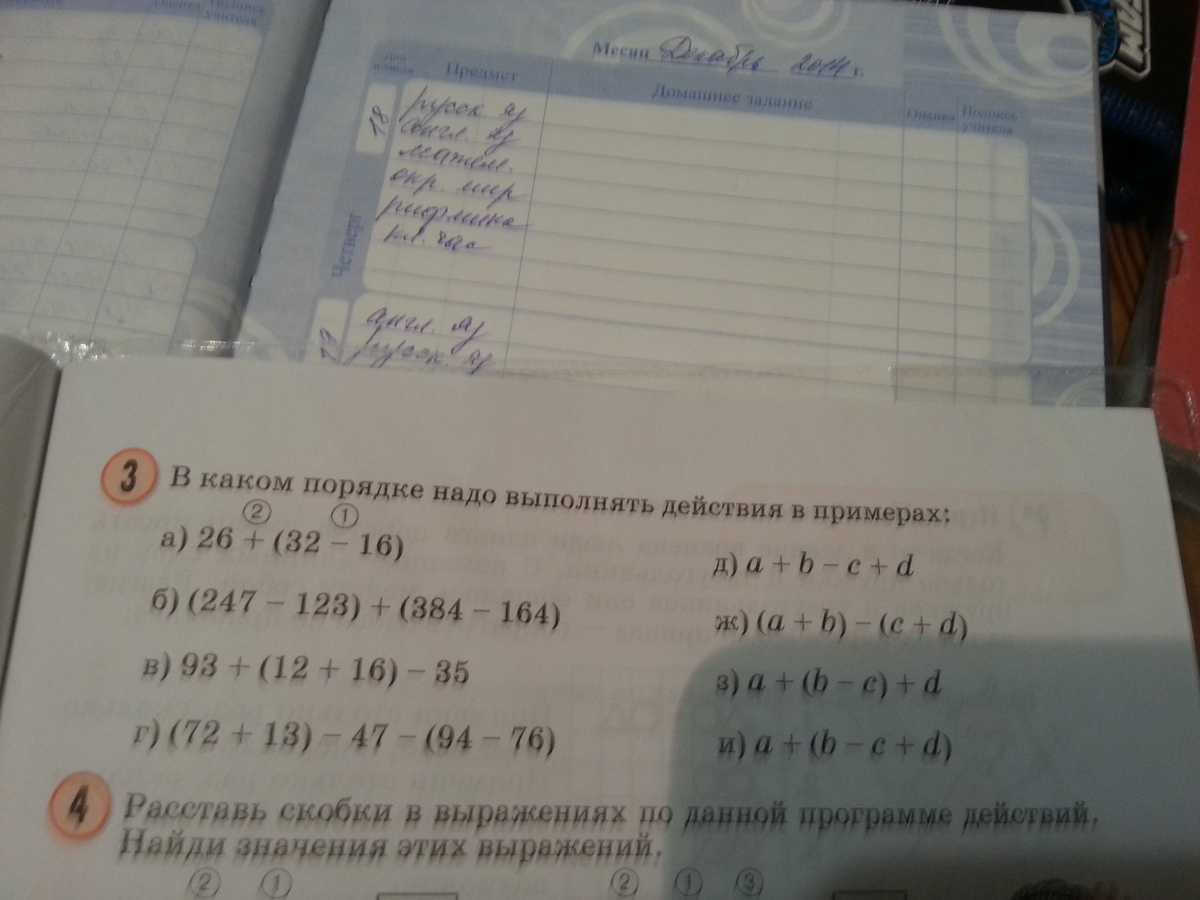 Оценка Подпись учителя
Месяц Декабрь 2014 г.
Предмет Домашнее задание Оценка Подпись учителя
18
русск. яз
англ. яз
матем.
окр. мир
ритмика
кл. час
Четверг
19
англ. яз
русск. яз
3 В каком порядке надо выполнять действия в примерах:
② ①
а) 26 + (32 − 16)
б) (247 − 123) + (384 − 164)
в) 93 + (12 + 16) − 35
г) (72 + 13) − 47 − (94 − 76)
д) a + b − c + d
ж) (a + b) − (c + d)
з) a + (b − c) + d
и) a + (b − c + d)
4 Расставь скобки в выражениях по данной программе действий.
Найди значения этих выражений.
② ① ② ① ③